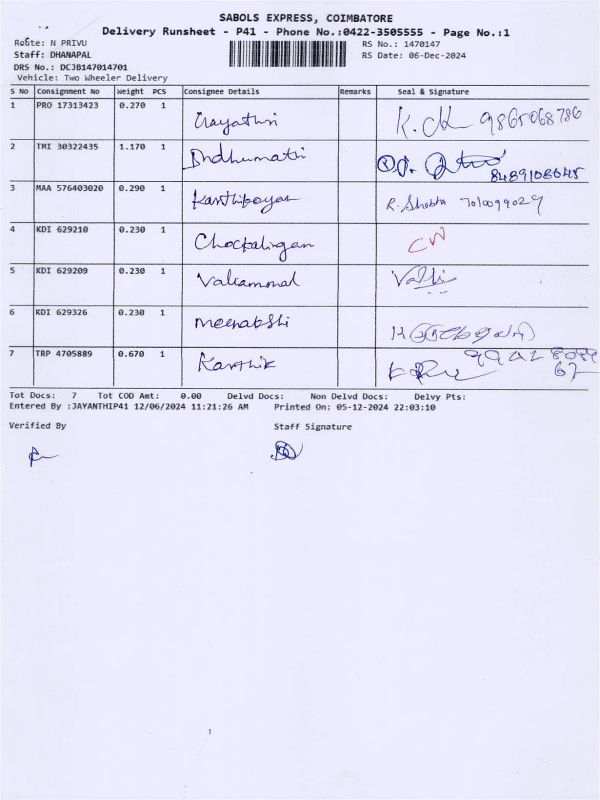 SABOLS EXPRESS, COIMBATORE
Delivery Runsheet - P41 - Phone No.:0422-3505555 - Page No.:1
Route: N PRIVU RS No.: 1470147
Staff: DHANAPAL RS Date: 06-Dec-2024
DRS No.: DCJB147014701
Vehicle: Two Wheeler Delivery
S No Consignment No Weight PCS Consignee Details Remarks Seal & Signature
1 PRO 17313423 0.270 1 Gayathri 9865068786
2 TMI 30322435 1.170 1 Indhumathi
8489108645
3 MAA 576403020 0.290 1 R. Shobha 7010099029
4 KDI 629210 0.230 1 Chockalingam
5 KDI 629209 0.230 1 Valliammal Valli
6 KDI 629326 0.230 1 Meenakshi
7 TRP 4705889 0.670 1 Karthik
Tot Docs: 7 Tot COD Amt: 0.00 Delvd Docs: Non Delvd Docs: Delvy Pts:
Entered By :JAYANTHIP41 12/06/2024 11:21:26 AM Printed On: 05-12-2024 22:03:10
Verified By Staff Signature